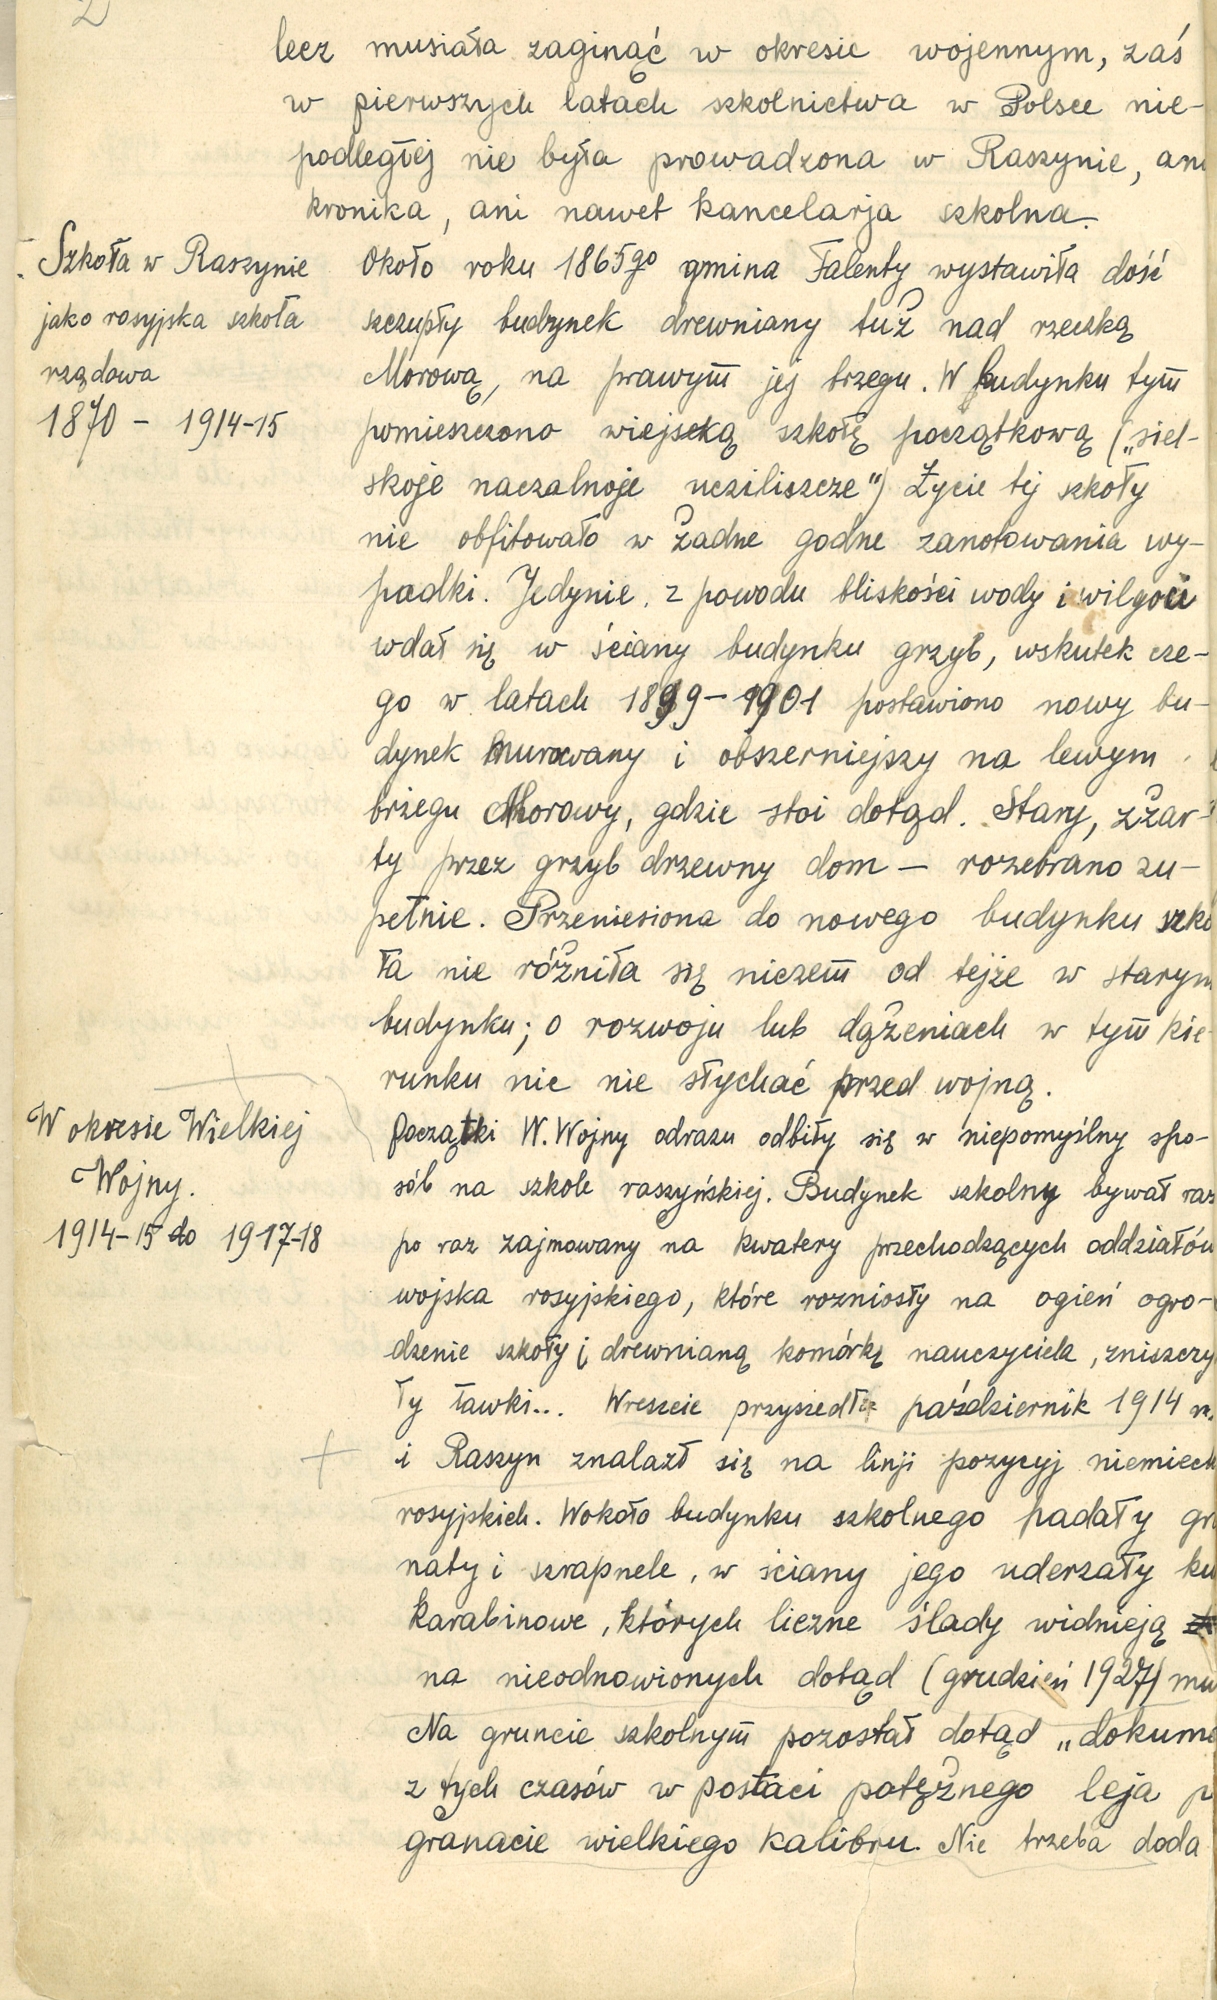 2
lecz musiała zaginąć w okresie wojennym, zaś
w pierwszych latach szkolnictwa w Polsce nie-
podległej nie była prowadzona w Raszynie, ani
kronika, ani nawet kancelarja szkolna.
Szkoła w Raszynie
jako rosyjska szkoła
rządowa
1870 - 1914-15
Około roku 1865go gmina Falenty wystawiła dość
szczupły budynek drewniany tuż nad rzeczką
Morową, na prawym jej brzegu. W budynku tym
pomieszczono wiejską szkołę początkową („siel-
skoje naczalnoje ucziliszcze") Życie tej szkoły
nie obfitowało w żadne godne zanotowania wy-
padki. Jedynie z powodu bliskości wody i wilgoci
wdał się w ściany budynku grzyb, wskutek cze-
go w latach 1899-1901 postawiono nowy bu-
dynek murowany i obszerniejszy na lewym
brzegu Morowy, gdzie stoi dotąd. Stary, zżar-
ty przez grzyb drzewny dom — rozebrano zu-
pełnie. Przeniesiona do nowego budynku szko
ła nie różniła się niczem od tejże w starym
budynku; o rozwoju lub dążeniach w tym kie-
runku nic nie słychać przed wojną.
W okresie Wielkiej
Wojny.
1914-15 do 1917-18
Początki W. Wojny odrazu odbiły się w niepomyślny spo-
sób na szkole raszyńskiej. Budynek szkolny bywał raz
po raz zajmowany na kwatery przechodzących oddziałów
wojska rosyjskiego, które rozniosły na ogień ogro-
dzenie szkoły i drewnianą komórkę nauczyciela, zniszczy
ły ławki... Wreszcie przyszedł październik 1914 r.
i Raszyn znalazł się na linji pozycyj niemieck
rosyjskich. Wokoło budynku szkolnego padały gr
naty i szrapnele, w ściany jego uderzały ku
karabinowe, których liczne ślady widnieją
na nieodnowionych dotąd (grudzień 1927) mu
Na gruncie szkolnym pozostał dotąd „dokume
z tych czasów w postaci potężnego leja p
granacie wielkiego kalibru. Nie trzeba doda